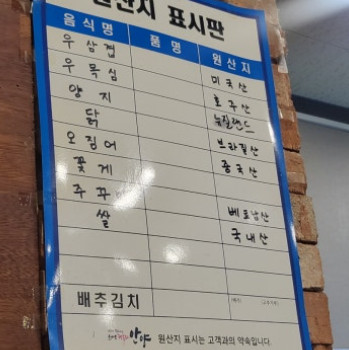 원산지 표시판
음식명 품명 원산지
우삼겹 미국산
우목심 호주산
양지 뉴질랜드
닭 브라질산
오징어 중국산
꽃게
주꾸미 베트남산
쌀 국내산
배추김치
안양 원산지 표시는 고객과의 약속입니다.